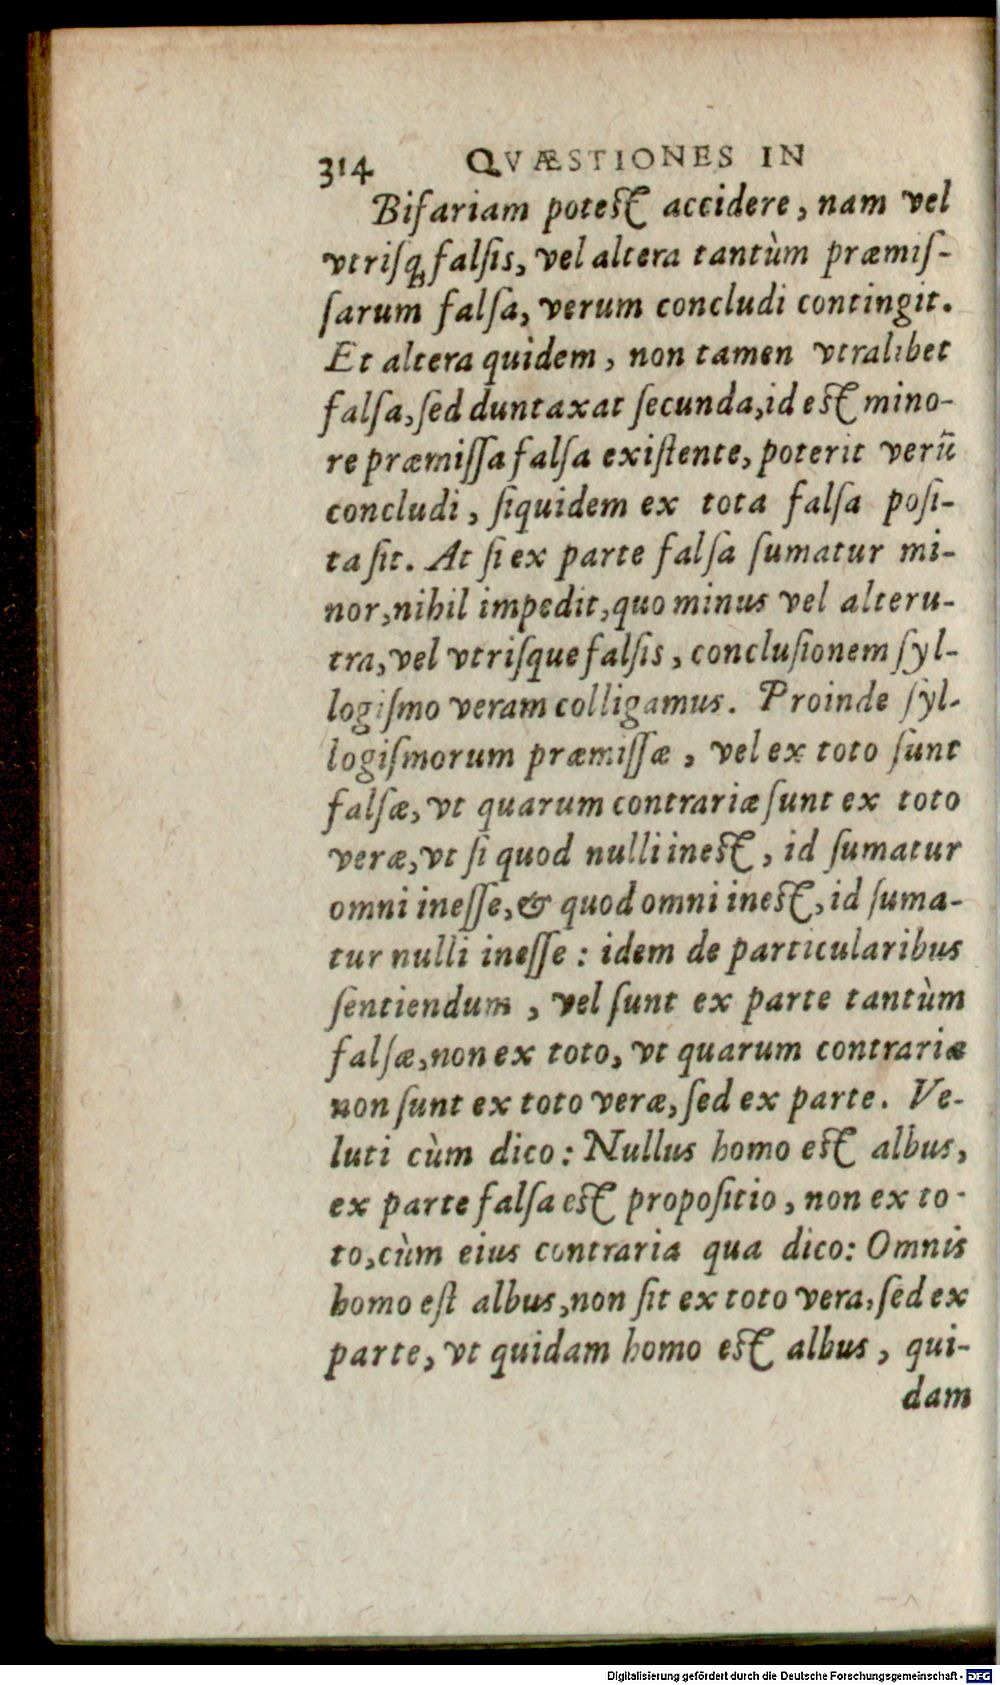 314 QVÆSTIONES IN
Bifariam potest accidere, nam vel
vtrisq; falſis, vel altera tantùm præmiſ-
ſarum falſa, verum concludi contingit.
Et altera quidem, non tamen vtralibet
falſa, ſed duntaxat ſecunda, id est mino-
re præmiſſa falſa exiſtente, poterit verũ
concludi, ſiquidem ex tota falſa poſi-
ta ſit. At ſi ex parte falſa ſumatur mi-
nor, nihil impedit, quo minus vel alteru-
tra, vel vtriſque falſis, concluſionem ſyl-
logiſmo veram colligamus. Proinde ſyl-
logiſmorum præmiſſæ, vel ex toto ſunt
falſæ, vt quarum contrariæ ſunt ex toto
veræ, vt ſi quod nulli inest, id ſumatur
omni ineſſe, & quod omni inest, id ſuma-
tur nulli ineſſe: idem de particularibus
ſentiendum, vel ſunt ex parte tantùm
falſæ, non ex toto, vt quarum contrariæ
non ſunt ex toto veræ, ſed ex parte. Ve-
luti cùm dico: Nullus homo est albus,
ex parte falſa est propoſitio, non ex to-
to, cùm eius contraria qua dico: Omnis
homo eſt albus, non ſit ex toto vera, ſed ex
parte, vt quidam homo est albus, qui-
dam
Digitalisierung gefördert durch die Deutsche Forschungsgemeinschaft - DFG